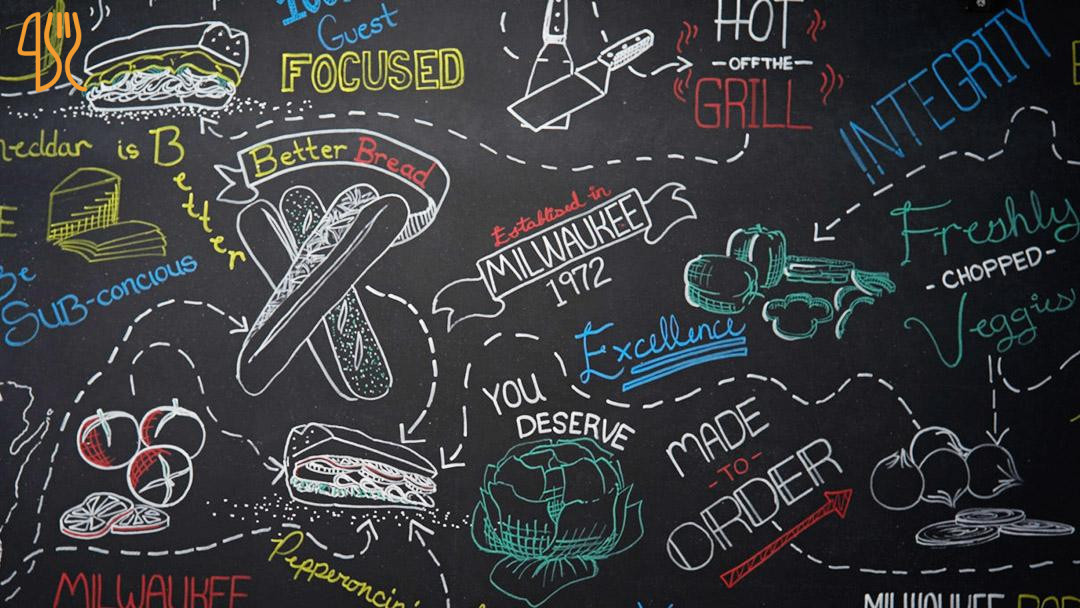 Guest
FOCUSED
HOT
-OFF THE-
GRILL
INTEGRITY
heddar is Better
Better Bread
Establised in
MILWAUKEE
1972
Freshly
-CHOPPED-
Veggies
Be
SUB-concious
Excellence
YOU
DESERVE
MADE
-TO-
ORDER
Pepperoncin
MILWAUKEE
MILWAUKEE